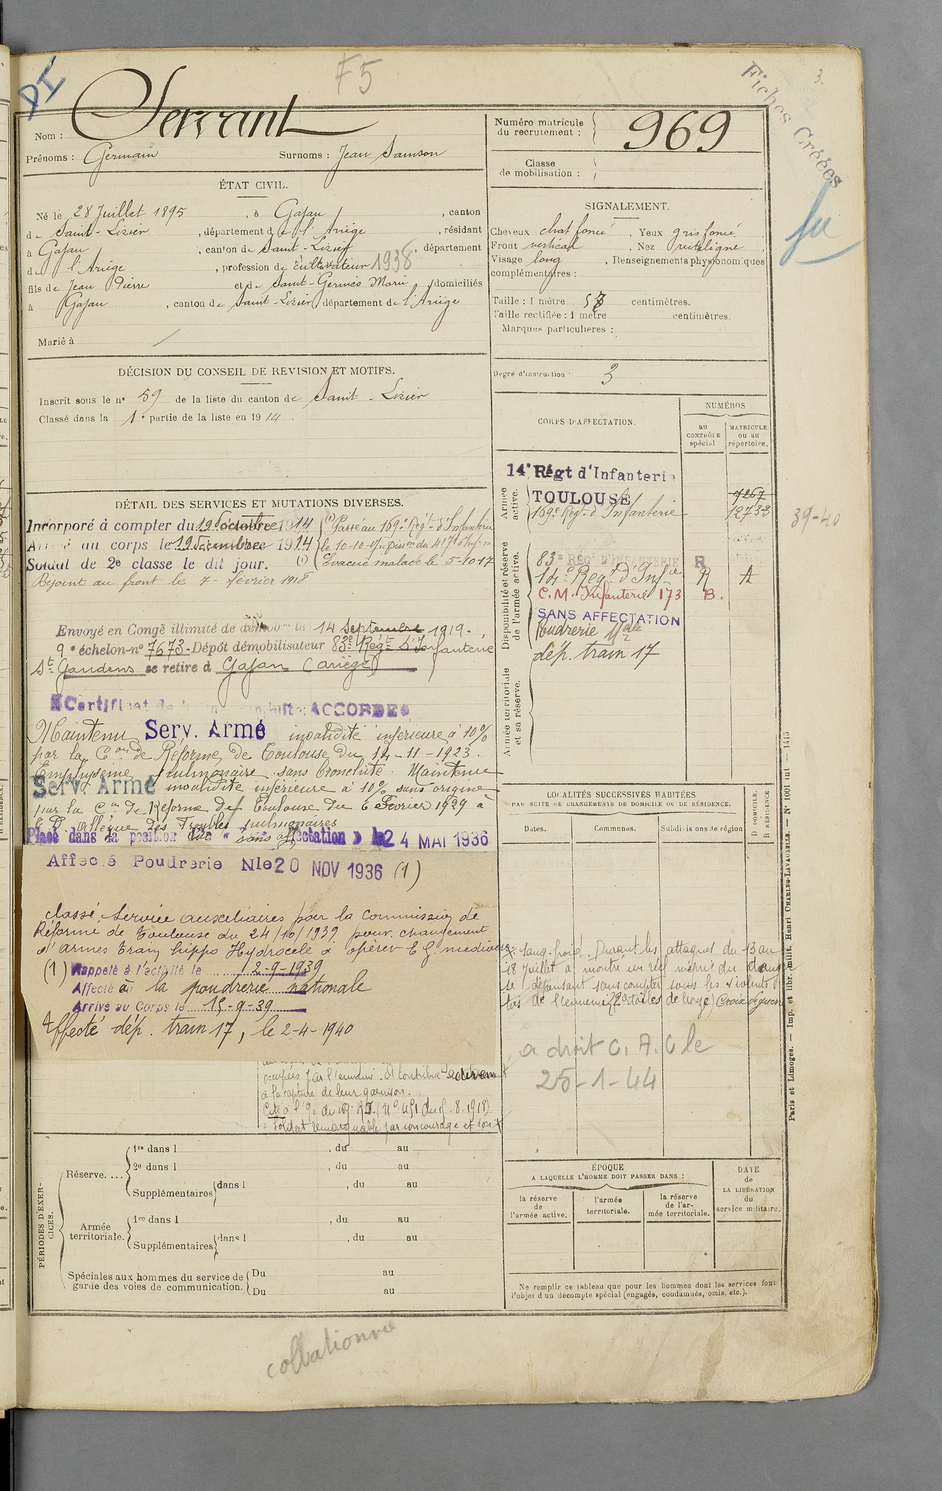 F5
3.
Fiches Créées
Nom : Servant
Prénoms : Germain Surnoms : Jean Samson
Numéro matricule
du recrutement : 969
Classe
de mobilisation :
ÉTAT CIVIL.
Né le 28 Juillet 1895, à Gajan, canton
de Saint-Lizier, département de l'Ariège, résidant
à Gajan, canton de Saint-Lizier, département
de l'Ariège, profession de cultivateur 1938
fils de Jean Pierre et de Saint-Germés Marie, domiciliés
à Gajan, canton de Saint-Lizier, département de l'Ariège
Marié à
SIGNALEMENT.
Cheveux chat foncé, Yeux gris foncé.
Front vertical, Nez rectiligne
Visage long, Renseignements physionomiques
complémentaires :
Taille : 1 mètre centimètres.
Taille rectifiée : 1 mètre centimètres.
Marques particulières :
Degré d'instruction : 3
DÉCISION DU CONSEIL DE REVISION ET MOTIFS.
Inscrit sous le n° 59 de la liste du canton de Saint-Lizier
Classé dans la 1e partie de la liste en 1914
CORPS D'AFFECTATION.
NUMÉROS
au
CONTRÔLE
spécial
MATRICULE
ou au
répertoire.
Armée
active.
14e Régt d'Infanterie
TOULOUSE 7267
169e Régt d'Infanterie 12733
39-40
Disponibilité et réserve
de l'armée active.
83e REGT D'INFANTERIE R
14e Régt d'Infie A A
C.M. Infanterie 173 B.
SANS AFFECTATION
Poudrerie Nale
dép. train 17
Armée territoriale
et sa réserve.
DÉTAIL DES SERVICES ET MUTATIONS DIVERSES.
Incorporé à compter du 19 Décembre 1914
Arrivé au corps le 19 Décembre 1914
Soldat de 2e classe le dit jour. (1)
(1) Passé au 169e Régt d'Infanterie
Evacué malade le 5-10-17
Rejoint au front le 7-février 1918
Envoyé en Congé illimité de démob le 14 Septembre 1919.
9e échelon-n° 7673-Dépôt démobilisateur 83e Régt d'Infanterie
St Gaudens se retire à Gajan (Ariège)
Certificat de bonne conduite ACCORDÉ
Maintenu Serv. Armé invalidité inférieure à 10%
par la Con de Réforme de Toulouse du 14-11-1923.
Emphysème pulmonaire sans bronchite. Maintenu
Serv. Armé invalidité inférieure à 10% sans origine
par la Con de Réforme de Toulouse du 6 Février 1929 à
Placé dans la position dite « sans affectation » le 24 MAI 1936
Affecté Poudrerie Nle 20 NOV 1936 (1)
classé Service auxiliaires par la Commission de
Réforme de Toulouse du 24/10/1939 pour changement
d'armes Train hippo Hydrocèle à opérer E.G. médiocre
(1) Rappelé à l'activité le 2-9-1939
Affecté à la poudrerie nationale
Arrivé au Corps le 15-9-39
Affecté dép. train 17, le 2-4-1940
à la capture de leur garnison.
Soldat remarquable par son courage et son
sang-froid. Durant les attaques du 13 au
18 Juillet a montré un réel mépris du danger
se dépensant sans compter sous les violents
tirs de l'ennemi. Croix de guerre
a droit C. A. C le
25-1-44
LOCALITÉS SUCCESSIVES HABITÉES
PAR SUITE DE CHANGEMENTS DE DOMICILE OU DE RÉSIDENCE.
Dates. Communes. Subdivisions de région
D DOMICILE.
R RÉSIDENCE
PÉRIODES D'EXERCICES.
Réserve.... 1re dans l , du au
2e dans l , du au
Supplémentaires dans l , du au
Armée
territoriale. 1re dans l , du au
Supplémentaires dans l , du au
Spéciales aux hommes du service de
garde des voies de communication. Du au
Du au
ÉPOQUE
A LAQUELLE L'HOMME DOIT PASSER DANS :
la réserve
de
l'armée active.
l'armée
territoriale.
la réserve
de l'armée territoriale.
DATE
de
LA LIBÉRATION
du
service militaire.
Ne remplir ce tableau que pour les hommes dont les services font
l'objet d'un décompte spécial (engagés, condamnés, omis, etc.).
Paris et Limoges. — Imp. et libr. milit. Henri CHARLES-LAVAUZELLE.
collationné